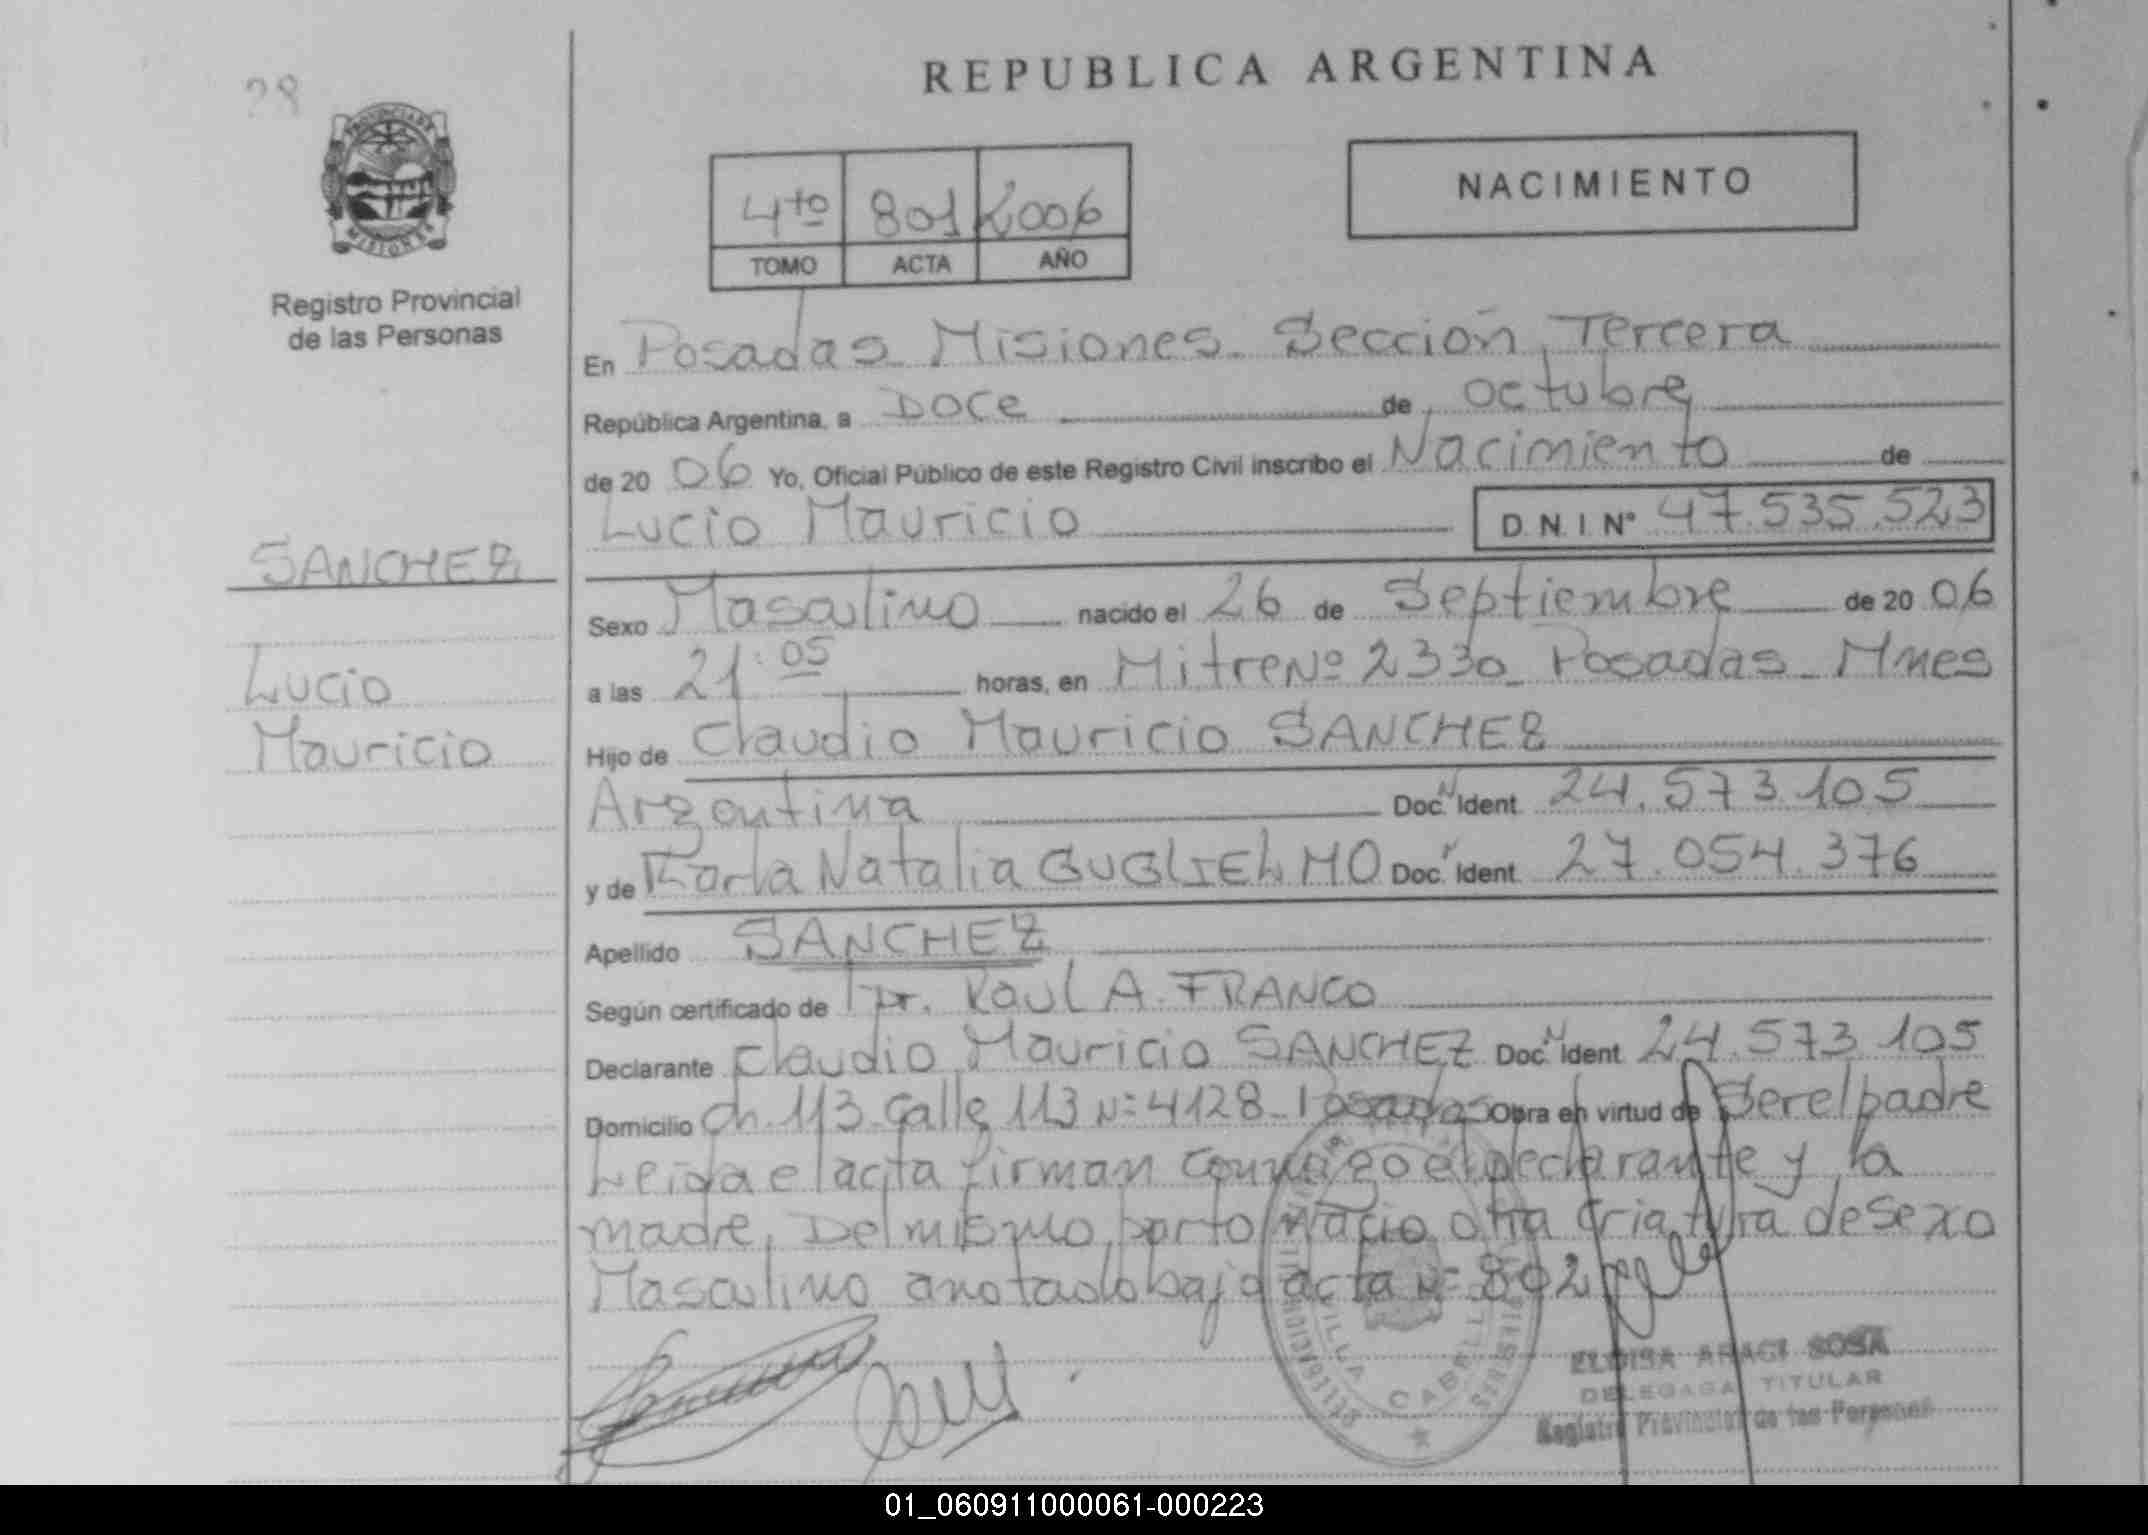 28
REPUBLICA ARGENTINA
PROVINCIA DE
MISIONES
Registro Provincial
de las Personas
4to 801 2006
TOMO ACTA AÑO
NACIMIENTO
En Posadas Misiones. Sección Tercera
República Argentina, a Doce de octubre
de 20 06 Yo, Oficial Público de este Registro Civil inscribo el Nacimiento de
Lucio Mauricio D.N.I Nº 47.535.523
SANCHEZ
Lucio
Mauricio
Sexo Masculino nacido el 26 de Septiembre de 20 06
a las 21:05 horas, en Mitre Nº 2330_ Posadas_ Mnes
Hijo de Claudio Mauricio SANCHEZ
Argentina Doc. N Ident. 24.573.105
y de Karla Natalia GUGLIELMO Doc. N Ident. 27.054.376
Apellido SANCHEZ
Según certificado de Dr. Raul A. FRANCO
Declarante Claudio Mauricio SANCHEZ Doc. N Ident 24.573.105
Domicilio Ch. 113 Calle 113 Nº 4128_ Posadas Obra en virtud de Ser el padre
Leida el acta firman conmigo el declarante y la
madre. Del mismo parto nacio otra criatura de sexo
Masculino anotado bajo acta Nº 802
VILLA CABELL
ELOISA ARACI SOSA
DELEGADA TITULAR
Registro Provincial de las Personas
01_060911000061-000223